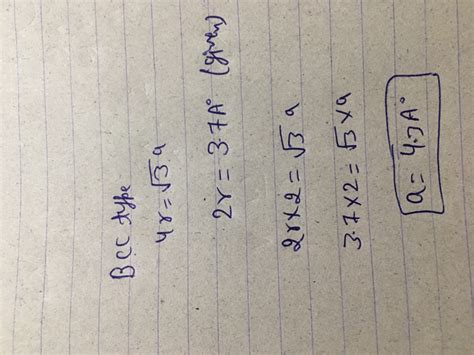 BCC type
4r = √3 a
2r = 3.7A° (given)
2r×2 = √3 a
3.7×2 = √3 × a
a = 4.3A°